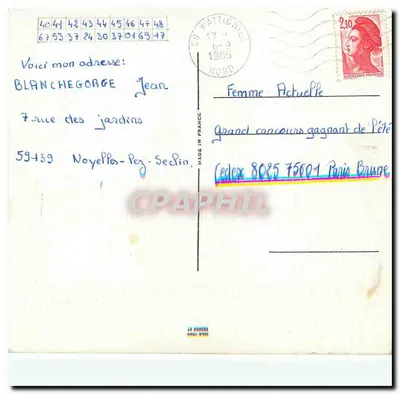 40 41 42 43 44 45 46 47 48
67 53 37 24 30 37 01 69 17
Voici mon adresse:
BLANCHEGORGE Jean
7 rue des jardins
59139 Noyelles-Lez-Seclin.
59 WATTIGNIES
17 H
6-9
1985
NORD
2,10
REPUBLIQUE FRANÇAISE
MADE IN FRANCE
Femme Actuelle
grand concours gagnant de l'été
Cedex 8085 75601 Paris Brune
CPAPHIL